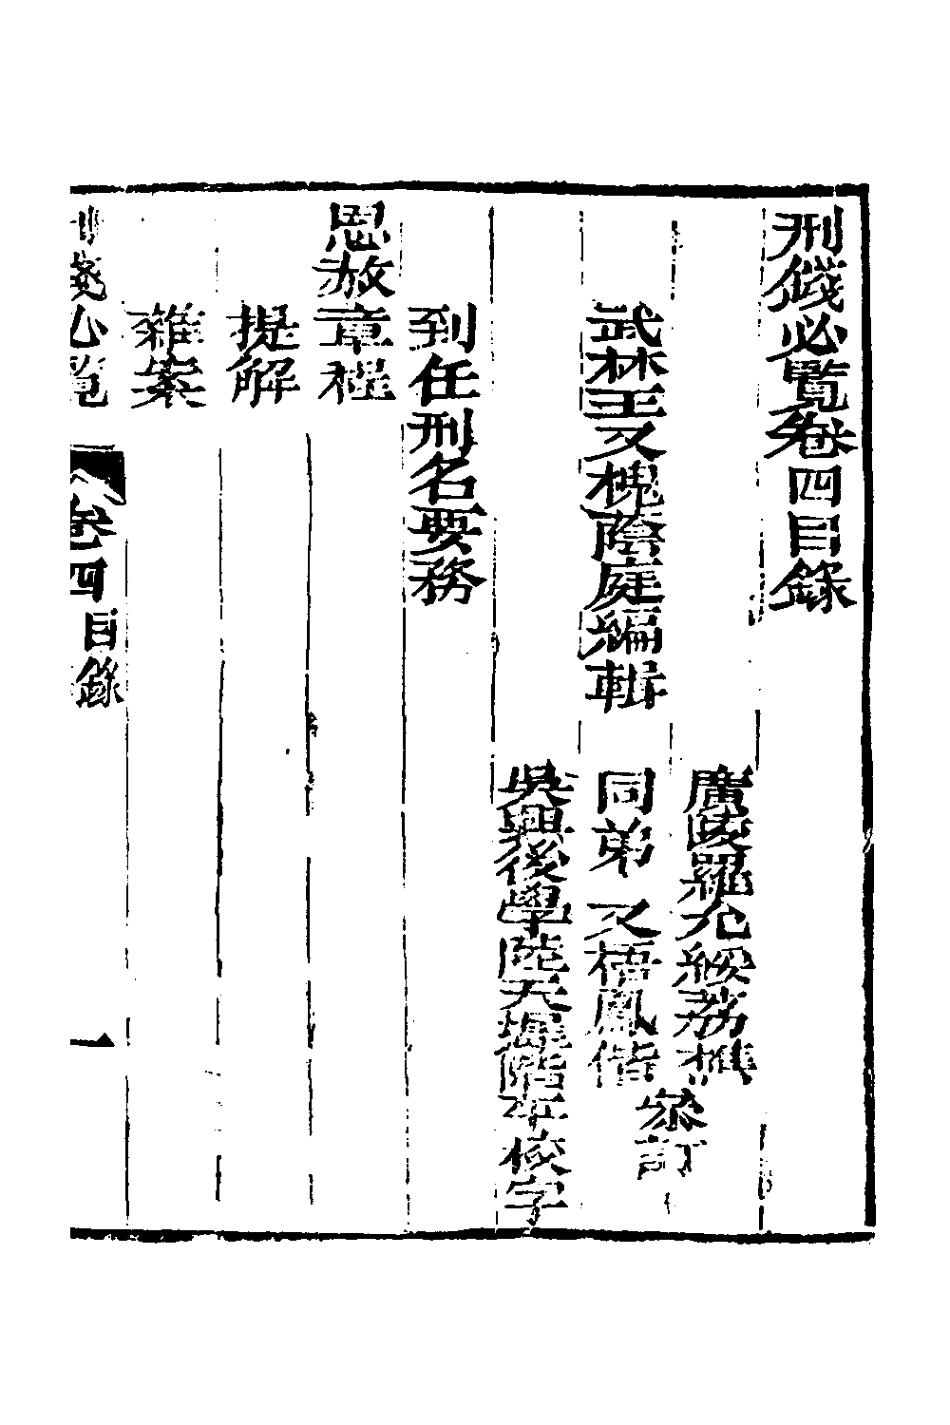 刑錢必覽卷四目錄
廣陵羅允綏荔
武林王又槐蔭庭編輯
同弟 又梧鳳偕
參訂
吳興後學陸天墀階平校字
到任刑名要務
恩赦章程
提解
雜案
刑錢必覽
卷四
目錄
一